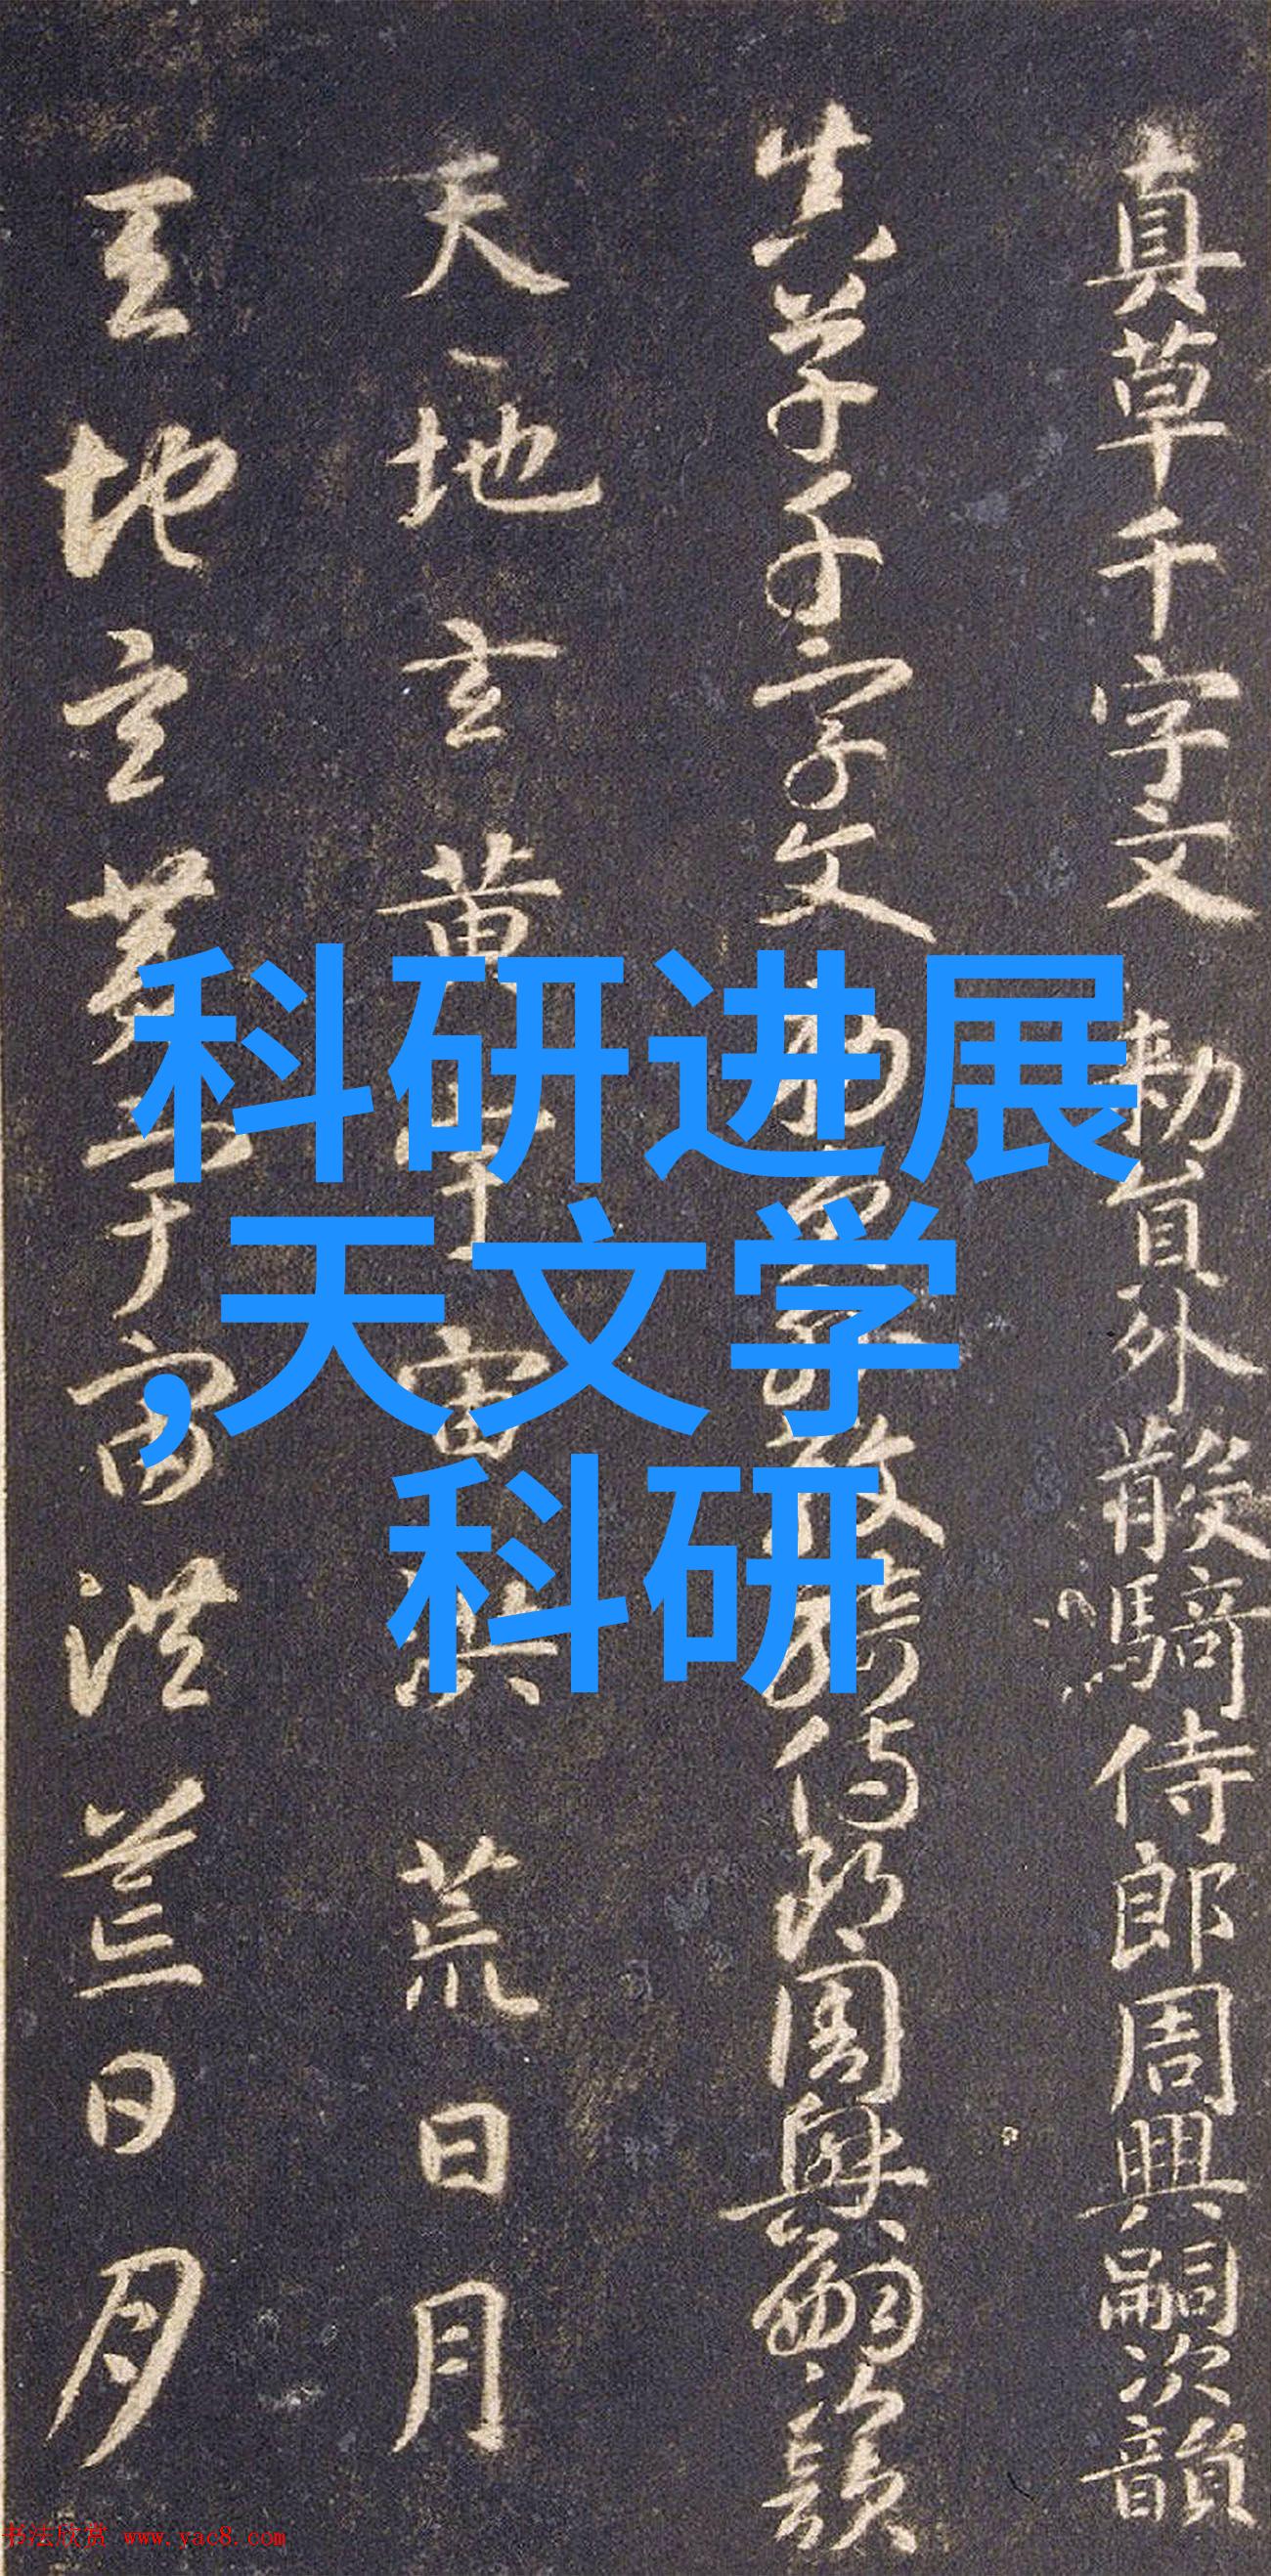 真草千字文 勅員外散騎侍郎周興嗣次韻
真草千字文 勅員外散騎侍郎周興嗣次韻
天地玄黄宇宙洪荒日月
天地玄黄宇宙洪荒日月
科研进展
,天文学
科研
书法欣赏 www.yac8.com